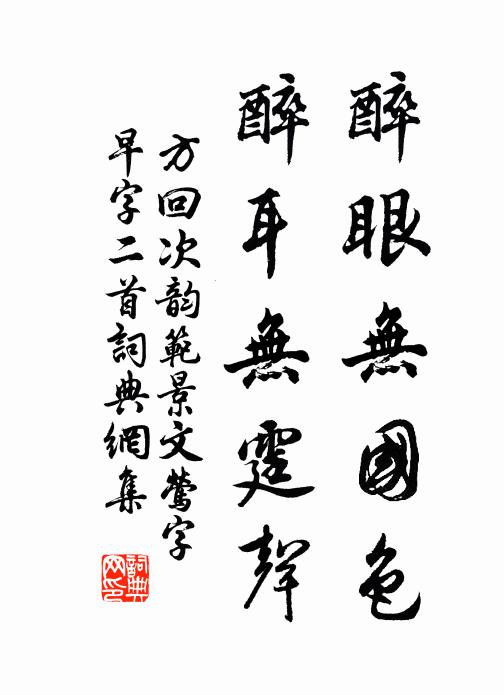 醉眼無國色
醉耳無霆聲
方回次韵範景文鶯字
早字二首詞典網集
詞典網印